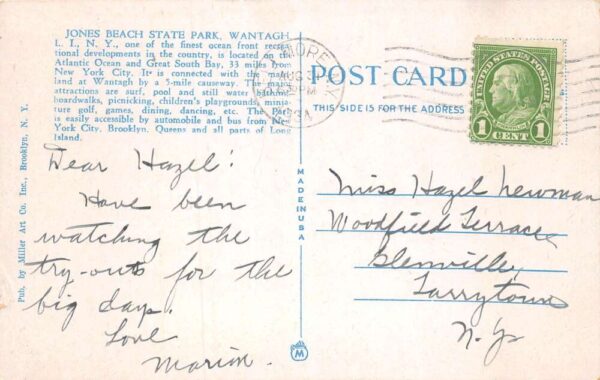 JONES BEACH STATE PARK, WANTAGH,
L. I., N. Y., one of the finest ocean front recrea-
tional developments in the country, is located on the
Atlantic Ocean and Great South Bay, 33 miles from
New York City. It is connected with the main
land at Wantagh by a 5-mile causeway. The many
attractions are surf, pool and still water bathing,
boardwalks, picnicking, children's playgrounds, minia-
ture golf, games, dining, dancing, etc. The Park
is easily accessible by automobile and bus from New
York City, Brooklyn, Queens and all parts of Long
Island.
MORE
AUG
PM
1934
POST CARD
THIS SIDE IS FOR THE ADDRESS
UNITED STATES POSTAGE
FRANKLIN
1 CENT 1
Pub. by Miller Art Co. Inc., Brooklyn, N. Y.
Dear Hazel:
Have been
watching the
try-outs for the
big days.
Love
Marion.
MADE IN USA
M
Miss Hazel Newman
Woodfield Terrace
Glenville,
Tarrytown
N. Y.